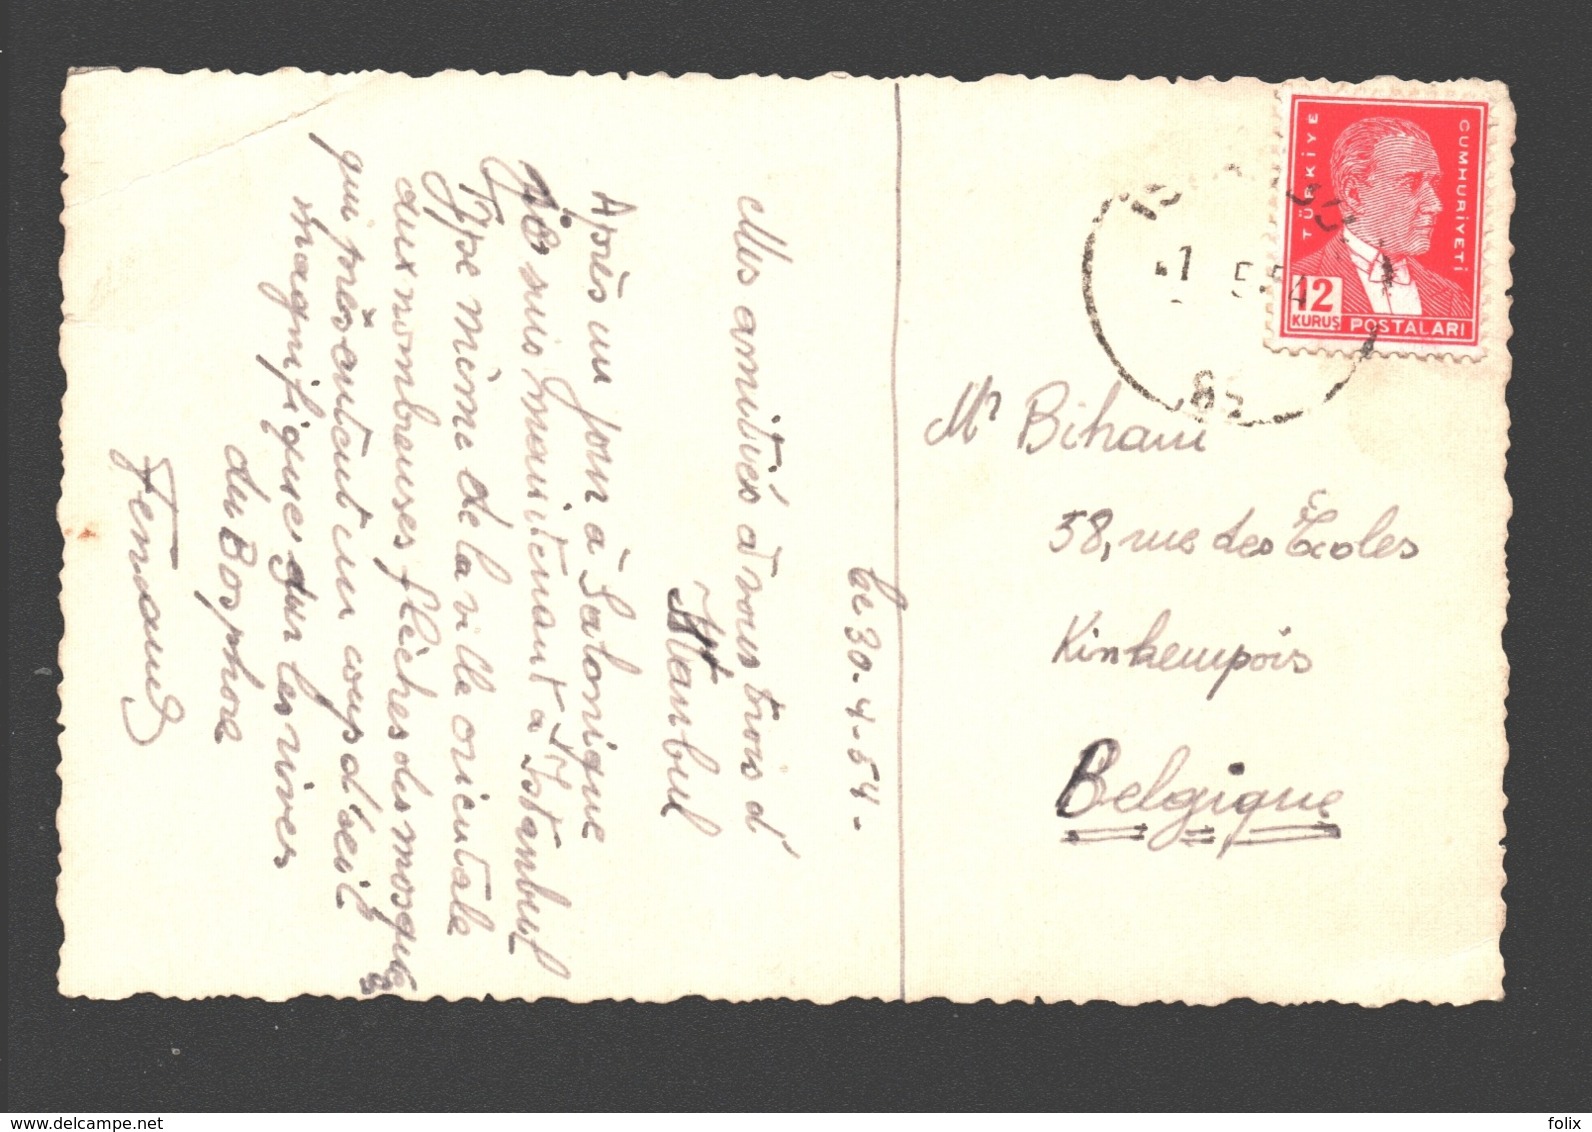 le 30-4-54-
Mes amitiés à vous trois d'
Istanbul
Après un jour à Salonique
je suis maintenant à Istanbul
Type même de la ville orientale
aux nombreuses flèches des mosquées
qui présentent un coup d'œil
magnifique sur les rives
du Bosphore
Fernand
TÜRKİYE
CUMHURİYETİ
12
KURUŞ POSTALARI
Mr Biham
58, rue des Écoles
Kinkempois
Belgique
www.delcampe.net
folix